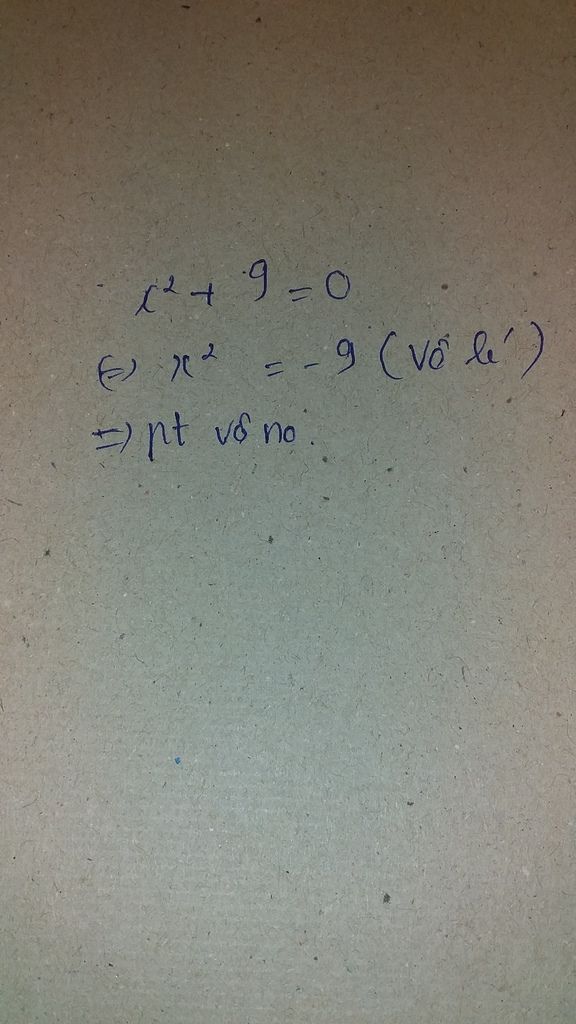 x² + 9 = 0
⇔ x² = -9 (vô lí)
⇒ pt vô no.